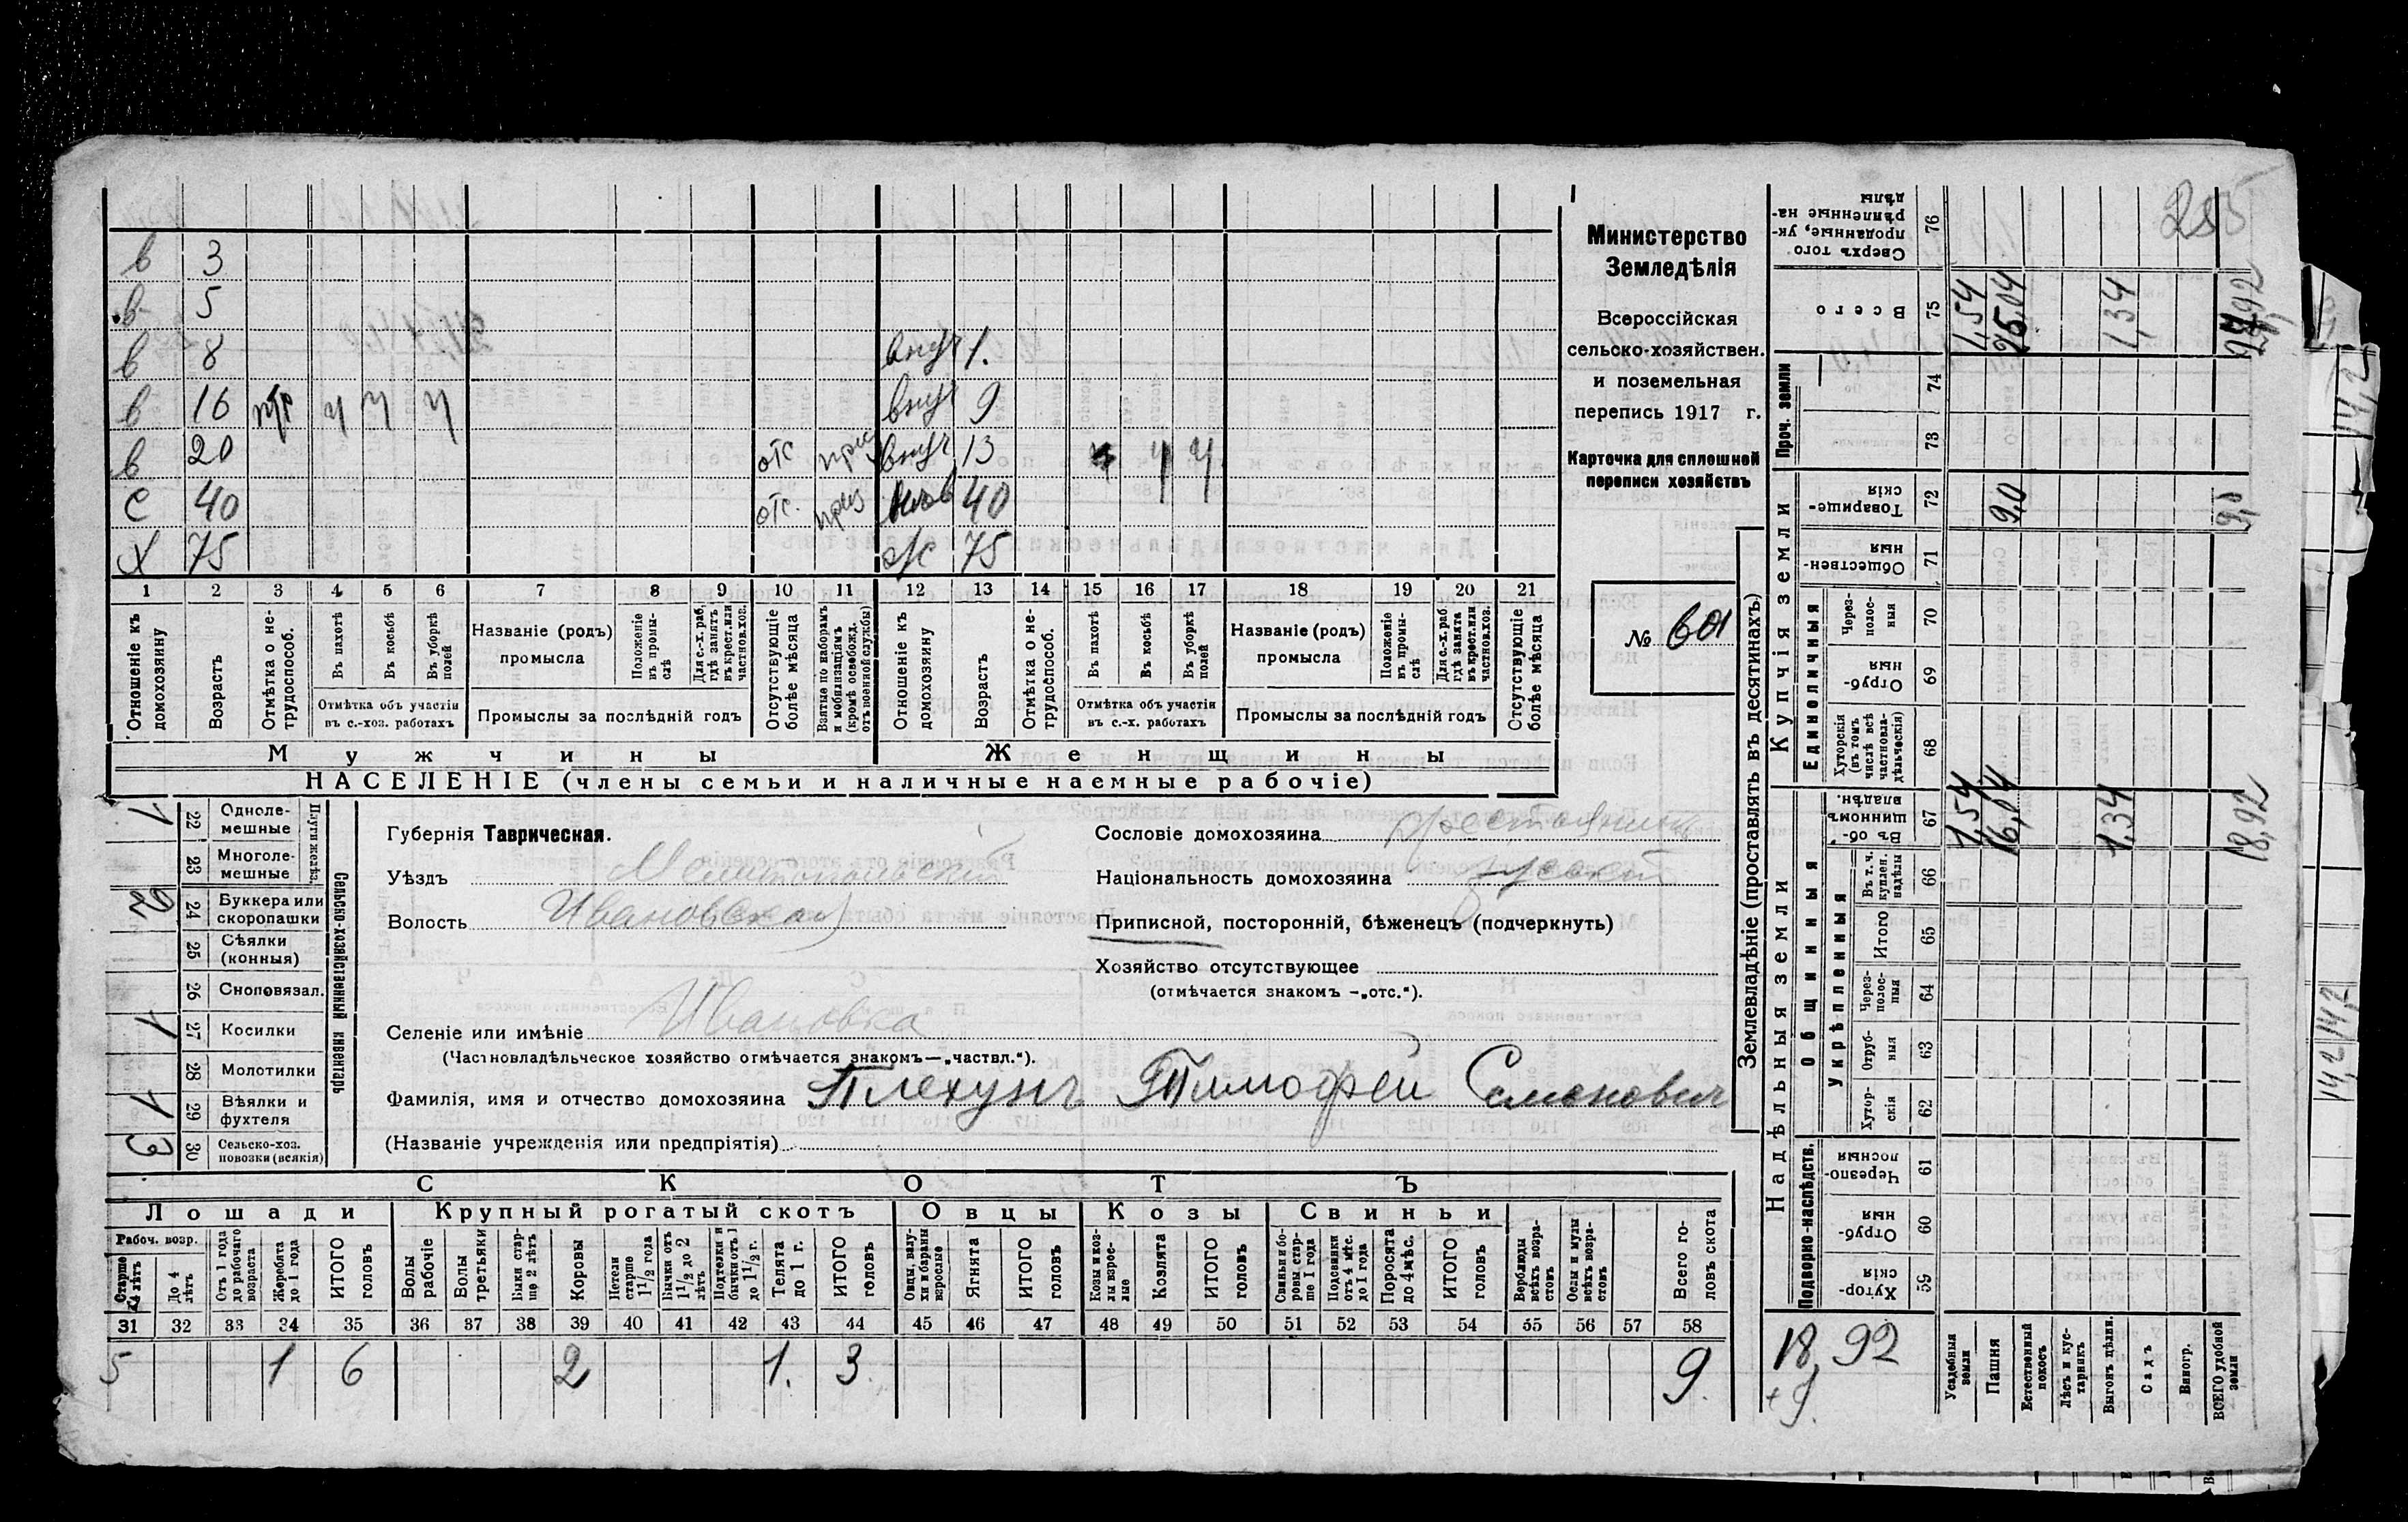 255
Министерство
Земледѣлія
Всероссійская
сельско-хозяйствен.
и поземельная
перепись 1917 г.
Карточка для сплошной
переписи хозяйствъ
№ 601
в 3
в 5
в 8 внуч 1.
в 16 н/с ч ч ч внуч 9
в 20 отс приз внуч 13 ч ч ч
с 40 отс. приз 40
х 75 ж 75
1 2 3 4 5 6 7 8 9 10 11 12 13 14 15 16 17 18 19 20 21
Отношеніе къ домохозяину
Возрастъ
Отмѣтка о нетрудоспособ.
Въ пахотѣ
Въ косьбѣ
Въ уборкѣ полей
Отмѣтка объ участіи въ с.-хоз. работахъ
Названіе (родъ) промысла
Положеніе въ промыслѣ
Для с.-х. раб, гдѣ занятъ въ крест. или частнов. хоз.
Промыслы за послѣдній годъ
Отсутствующіе болѣе мѣсяца
Взятые по наборамъ и мобилизаціямъ (кромѣ освобожд. отъ военной службы)
Отношеніе къ домохозяину
Возрастъ
Отмѣтка о нетрудоспособ.
Въ пахотѣ
Въ косьбѣ
Въ уборкѣ полей
Отмѣтка объ участіи въ с.-х. работахъ
Названіе (родъ) промысла
Положеніе въ промыслѣ
Для с.-х. раб гдѣ занята въ крест. или частнов. хоз.
Промыслы за послѣдній годъ
Отсутствующіе болѣе мѣсяца
Мужчины Женщины
НАСЕЛЕНІЕ (члены семьи и наличные наемные рабочіе)
Сельско-хозяйственный инвентарь
Плуги желѣз.
1 22 Одноле-мешные
23 Многоле-мешные
2 24 Буккера или скоропашки
25 Сѣялки (конныя)
26 Сноповязал.
1 27 Косилки
28 Молотилки
1 29 Вѣялки и фухтеля
3 30 Сельско-хоз. повозки (всякія)
Губернія Таврическая.
Уѣздъ Мелитопольскій
Волость Ивановская
Селеніе или имѣніе Ивановка
(Частновладѣльческое хозяйство отмѣчается знакомъ—„частвл.“).
Фамилія, имя и отчество домохозяина Плехунъ Тимофей Семенович
(Названіе учрежденія или предпріятія)
Сословіе домохозяина крестьянин
Національность домохозяина русскій
Приписной, посторонній, бѣженецъ (подчеркнуть)
Хозяйство отсутствующее
(отмѣчается знакомъ —„отс.“).
СКОТЪ
Лошади Крупный рогатый скотъ Овцы Козы Свиньи
Рабоч. возр.
Старше 4 лѣтъ
До 4 лѣтъ
Отъ 1 года до рабочаго возраста
Жеребята до 1 года
ИТОГО головъ
Волы рабочіе
Волы третьяки
Быки старше 2 лѣтъ
Коровы
Нетели старше 1 1/2 года
Бычки отъ 1 1/2 до 2 лѣтъ
Подтелки и бычки отъ 1 до 1 1/2 г.
Телята до 1 г.
ИТОГО головъ
Овцы, валухи и бараны взрослые
Ягнята
ИТОГО головъ
Козы и козлы взрослые
Козлята
ИТОГО головъ
Свиньи и боровы старше 1 года
Подсвинки отъ 4 мѣс. до 1 года
Поросята до 4 мѣс.
ИТОГО головъ
Верблюды всѣхъ возрастовъ
Ослы и мулы всѣхъ возрастовъ
Всего головъ скота
31 32 33 34 35 36 37 38 39 40 41 42 43 44 45 46 47 48 49 50 51 52 53 54 55 56 57 58
5 1 6 2 1. 3 9.
Землевладѣніе (проставлять въ десятинахъ)
Надѣльныя земли Купчія земли Проч. земли
Подворно-наслѣдств. Общинныя Единоличныя
Укрѣпленныя
Хуторскія 59
Отрубныя 60
Черезполосныя 61
Хуторскія 62
Отрубныя 63
Черезполосныя 64
Итого 65
Въ т. ч. куплен. надѣлы 66
Въ общинномъ владѣн. 67
Хуторскія (въ томъ числѣ всѣ частновладѣльческія) 68
Отрубныя 69
Черезполосныя 70
Общественныя 71
Товарищескія 72
73
74
Всего 75
Сверхъ того проданные, укрѣпленные надѣлы 76
Усадебныя земли 1,54 1,54
Пашня 16,04 9,0 25,04
Естественный покосъ
Лѣсъ и кустарникъ
Выгонъ цѣлин. 1,34 1,34
Садъ
Виногр.
ВСЕГО удобной земли 18,92 9,0 27,92
18,92
+9.
14,2
14,2 14,2